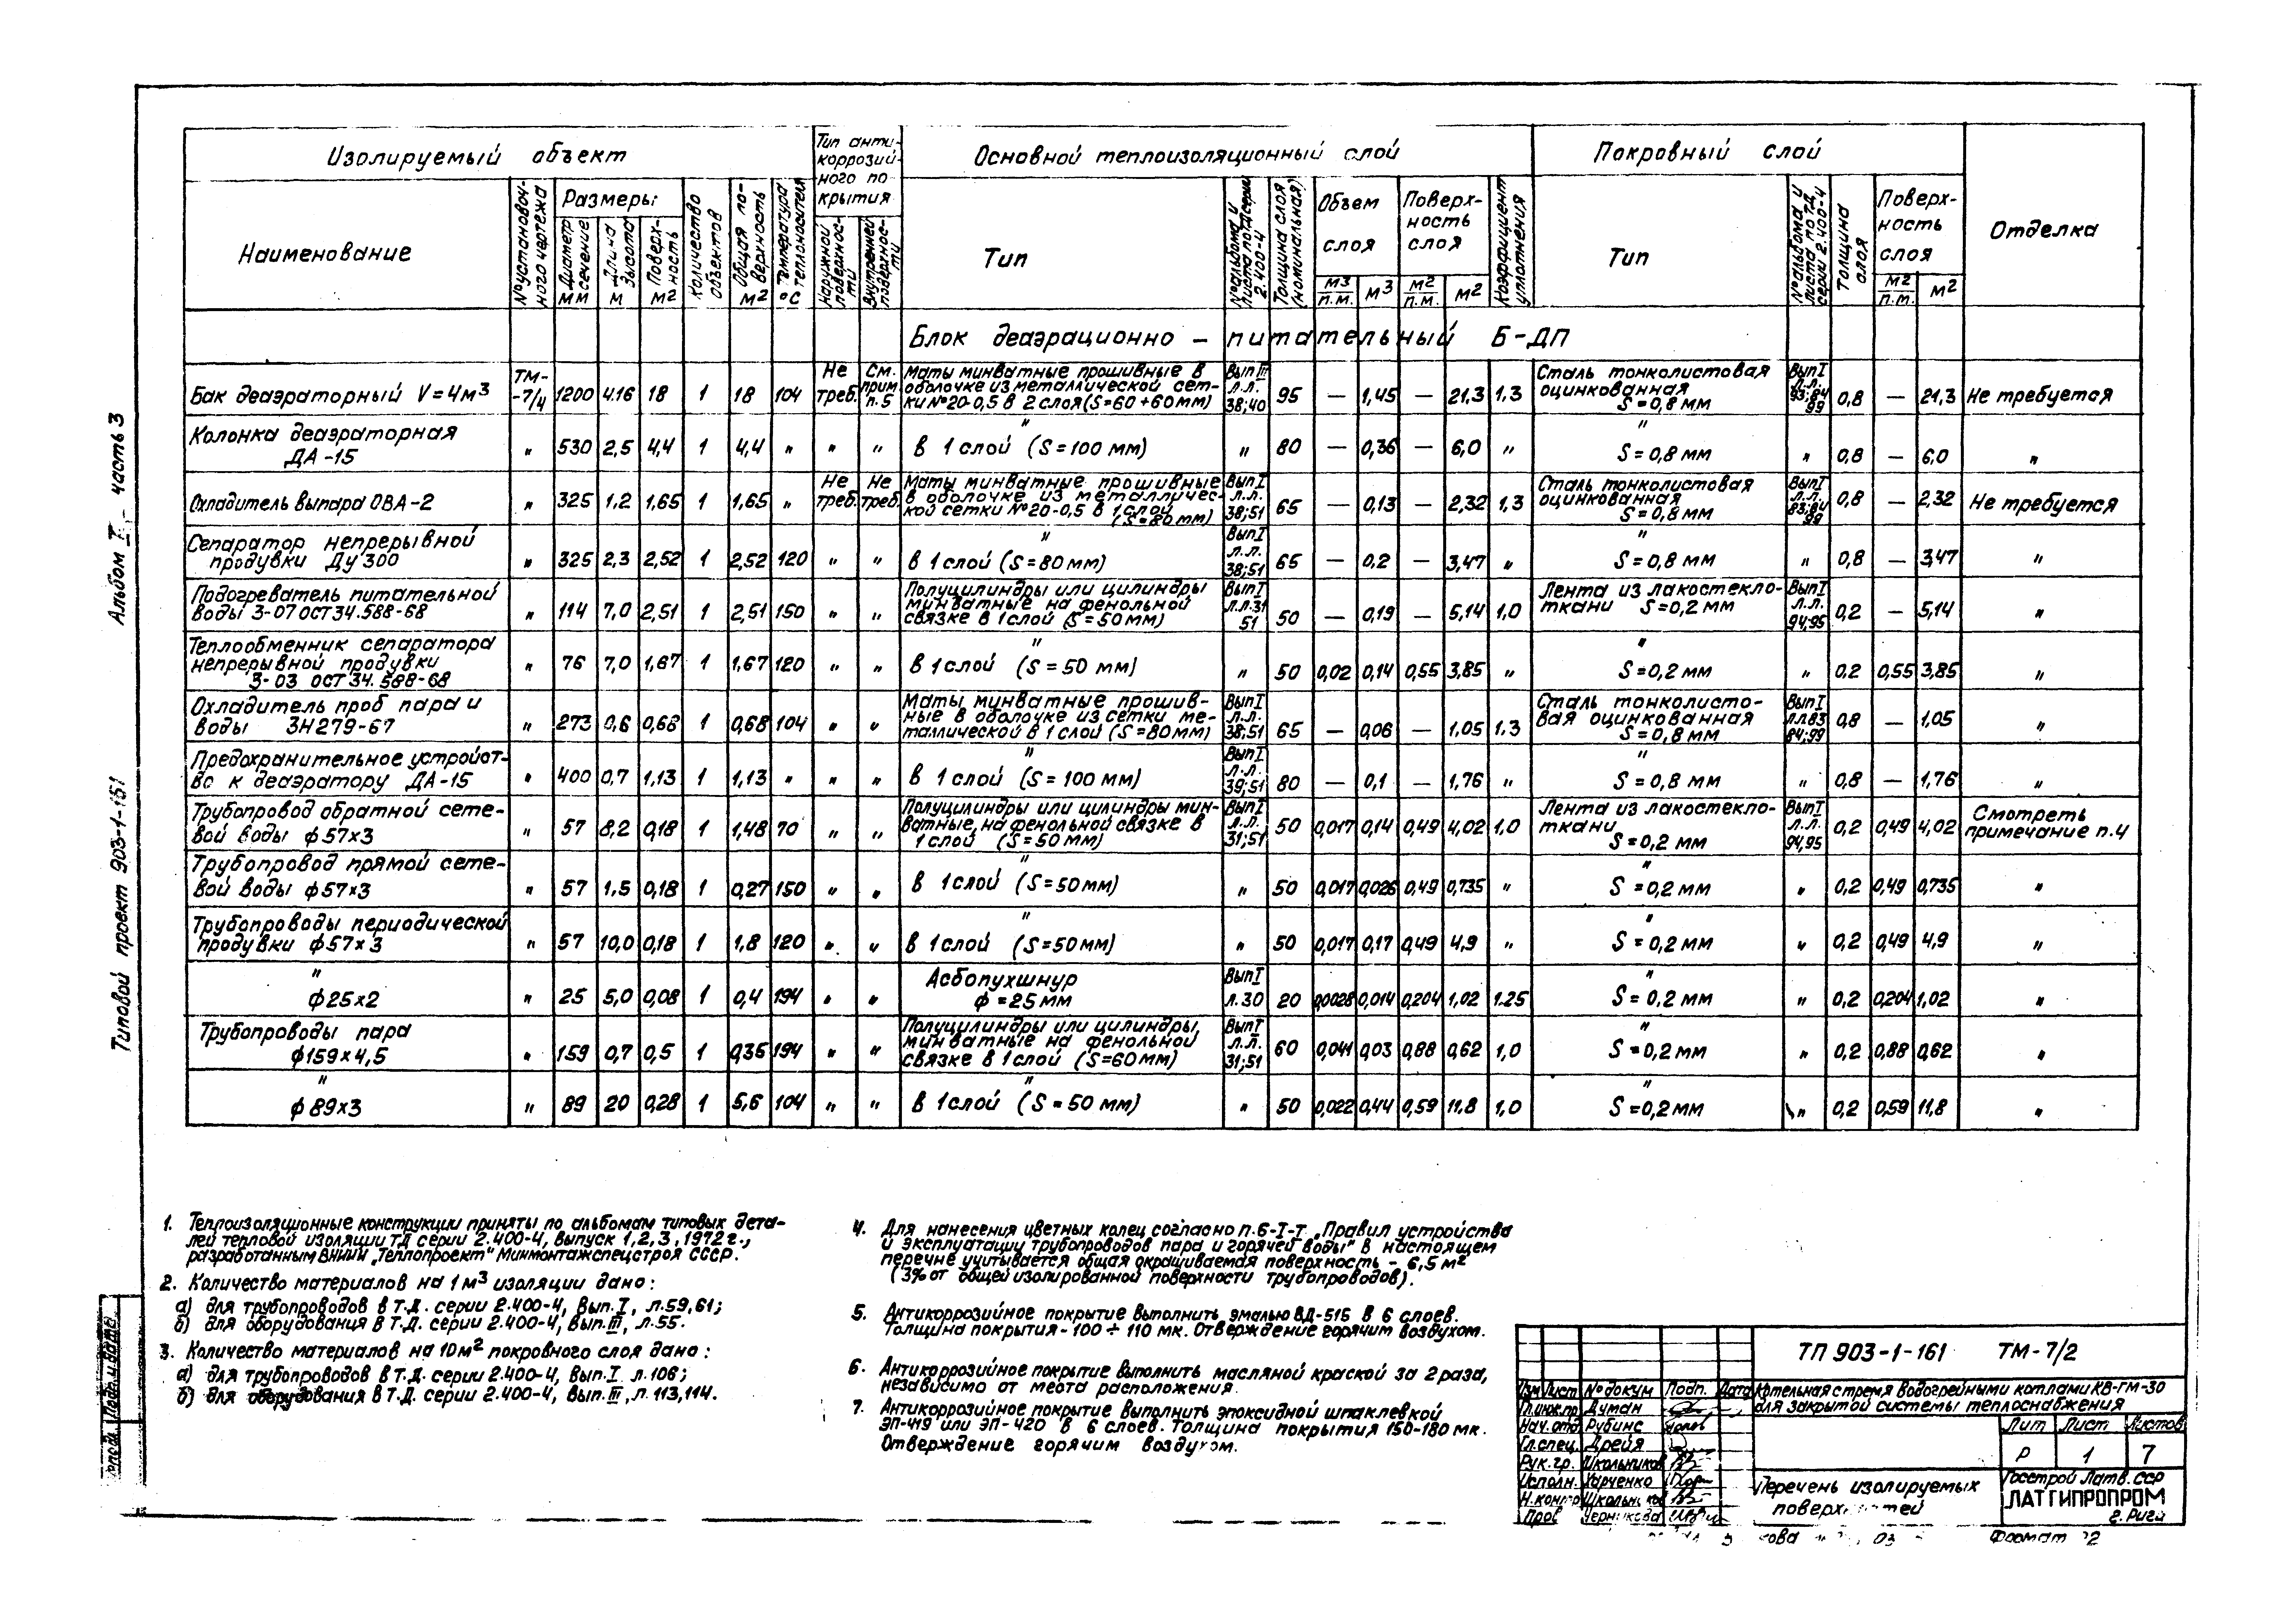 Альбом I, часть 3
Типовой проект 903-1-151
Изолируемый объект
Тип анти-
коррозий-
ного по
крытия
Основной теплоизоляционный слой
Покровный слой
Отделка
Наименование
№ установоч-
ного чертежа
Размеры:
Диаметр сечение мм
Длина высота м
Поверх-
ность м2
Количество объектов
Общая по-
верхность м2
Температура теплоносителя °С
Наружной поверхнос-
ти
Внутренней поверхнос-
ти
Тип
№ альбома и листа по ТД серии 2.400-4
Толщина слоя (номинальная)
Объем слоя
м3/п.м.
м3
Поверх-
ность слоя
м2/п.м.
м2
Коэффициент уплотнения
Тип
№ альбома и листа по ТД серии 2.400-4
Толщина слоя
Поверх-
ность
слоя
м2/п.м.
м2
Блок деаэрационно – питательный Б-ДП
Бак деаэраторный V=4м3 ТМ-7/4 1200 4.16 18 1 18 104 Не треб. См. прим. п.5 Маты минватные прошивные в оболочке из металлической сетки №20-0,5 в 2 слоя (S=60+60мм) Вып III л.л. 38;40 95 — 1,45 — 21,3 1,3 Сталь тонколистовая оцинкованная S=0,8 мм Вып I л.л. 93;84 99 0,8 — 21,3 Не требуется
Колонка деаэраторная ДА-15 " 530 2,5 4,4 1 4,4 " " " " в 1 слой (S=100 мм) " 80 — 0,36 — 6,0 " " S=0,8 мм " 0,8 — 6,0 "
Охладитель выпара ОВА-2 " 325 1,2 1,65 1 1,65 " Не треб. Не треб. Маты минватные прошивные в оболочке из металлической сетки №20-0,5 в 1 слой (S=80мм) Вып I л.л. 38;51 65 — 0,13 — 2,32 1,3 Сталь тонколистовая оцинкованная S=0,8 мм Вып I л.л. 83;84 99 0,8 — 2,32 Не требуется
Сепаратор непрерывной продувки Ду 300 " 325 2,3 2,52 1 2,52 120 " " " в 1 слой (S=80мм) Вып I л.л. 38;51 65 — 0,2 — 3,47 " " S=0,8 мм " 0,8 — 3,47 "
Подогреватель питательной воды 3-07 ОСТ 34.588-68 " 114 7,0 2,51 1 2,51 150 " " Полуцилиндры или цилиндры минватные на фенольной связке в 1 слой (S=50мм) Вып I л.л.31 51 50 — 0,19 — 5,14 1,0 Лента из лакостеклоткани S=0,2 мм Вып I л.л. 94,95 0,2 — 5,14 "
Теплообменник сепаратора непрерывной продувки 3-03 ОСТ 34.588-68 " 76 7,0 1,67 1 1,67 120 " " " в 1 слой (S=50 мм) " 50 0,02 0,14 0,55 3,85 " " S=0,2 мм " 0,2 0,55 3,85 "
Охладитель проб пара и воды 3Н279-67 " 273 0,6 0,68 1 0,68 104 " " Маты минватные прошивные в оболочке из сетки металлической в 1 слой (S=80мм) Вып I л.л. 38;51 65 — 0,06 — 1,05 1,3 Сталь тонколистовая оцинкованная S=0,8 мм Вып I л.л.83 84;99 0,8 — 1,05 "
Предохранительное устройство к деаэратору ДА-15 " 400 0,7 1,13 1 1,13 " " " " в 1 слой (S=100 мм) Вып I л.л. 39;51 80 — 0,1 — 1,76 " " S=0,8 мм " 0,8 — 1,76 "
Трубопровод обратной сетевой воды ф57х3 " 57 8,2 0,18 1 1,48 70 " " Полуцилиндры или цилиндры минватные, на фенольной связке в 1 слой (S=50мм) Вып I л.л. 31;51 50 0,017 0,14 0,49 4,02 1,0 Лента из лакостеклоткани S=0,2 мм Вып I л.л. 94,95 0,2 0,49 4,02 Смотреть примечание п.4
Трубопровод прямой сетевой воды ф57х3 " 57 1,5 0,18 1 0,27 150 " " " в 1 слой (S=50мм) " 50 0,017 0,026 0,49 0,735 " " S=0,2 мм " 0,2 0,49 0,735 "
Трубопроводы периодической продувки ф57х3 " 57 10,0 0,18 1 1,8 120 " " " в 1 слой (S=50мм) " 50 0,017 0,17 0,49 4,9 " " S=0,2 мм " 0,2 0,49 4,9 "
" ф25х2 " 25 5,0 0,08 1 0,4 194 " " Асбопухшнур ф=25мм Вып I л.30 20 0,0028 0,014 0,204 1,02 1.25 " S=0,2 мм " 0,2 0,204 1,02 "
Трубопроводы пара ф159х4,5 " 159 0,7 0,5 1 0,35 194 " " Полуцилиндры или цилиндры, минватные на фенольной связке в 1 слой (S=60мм) Вып I л.л. 31;51 60 0,041 0,03 0,88 0,62 1,0 " S=0,2 мм " 0,2 0,88 0,62 "
" ф89х3 " 89 20 0,28 1 5,6 104 " " " в 1 слой (S=50 мм) " 50 0,022 0,44 0,59 11,8 1,0 " S=0,2 мм " 0,2 0,59 11,8 "
1. Теплоизоляционные конструкции приняты по альбомам типовых дета-
лей тепловой изоляции ТД серии 2.400-4, выпуск 1,2,3, 1972 г.,
разработанным ВНИПИ „Теплопроект" Минмонтажспецстроя СССР.
2. Количество материалов на 1м3 изоляции дано:
а) для трубопроводов в Т.Д. серии 2.400-4, Вып. I, л.59,61;
б) для оборудования в Т.Д. серии 2.400-4, Вып. III, л.55.
3. Количество материалов на 10м2 покровного слоя дано:
а) для трубопроводов в Т.Д. серии 2.400-4, Вып. I л.106;
б) для оборудования в Т.Д. серии 2.400-4, Вып. III, л.113,114.
4. Для нанесения цветных колец согласно п.6-I-Т „Правил устройства
и эксплуатации трубопроводов пара и горячей воды" в настоящем
перечне учитывается общая окрашиваемая поверхность – 6,5 м2
(3% от общей изолированной поверхности трубопроводов).
5. Антикоррозийное покрытие выполнить эмалью ВД-515 в 6 слоев.
Толщина покрытия – 100 ÷ 110 мк. Отверждение горячим воздухом.
6. Антикоррозийное покрытие выполнить масляной краской за 2 раза,
независимо от места расположения.
7. Антикоррозийное покрытие выполнить эпоксидной шпаклевкой
ЭП-419 или ЭП-420 в 6 слоев. Толщина покрытия 150-180 мк.
Отверждение горячим воздухом.
ТП 903-1-161 ТМ-7/2
Изм Лист № докум Подп. Дата
Котельная с тремя водогрейными котлами КВ-ГМ-30
для закрытой системы теплоснабжения
Гл.инж.пр Думан
Нач.отд Рубинс
Гл.спец. Дрейя
Рук.гр. Школьников
Исполн. Харченко
Н.контр Школьников
Пров Черникова
Лит Лист Листов
Р 1 7
Перечень изолируемых
поверхностей
Госстрой Латв.ССР
ЛАТГИПРОПРОМ
г. Рига
Подп. и дата
Формат 22